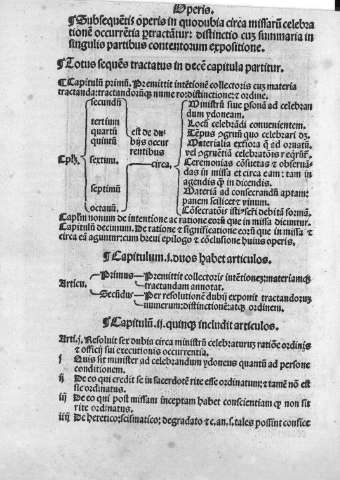 Operis.
¶Subsequẽtis operis in quo dubia circa missarũ celebra
tionẽ occurrẽtia ꝑtractãtur: distinctio cuʒ summaria in
singulis partibus contentorum expositione.
¶Totus sequẽs tractatus in decẽ capitula partitur.
¶Capitulũ primũ. Premittit intẽtionẽ collectoris cuʒ materia
tractanda: tractandorũqʒ numero: distinctione ⁊ ordine.
Cplʒ.
secundũ
tertium
quartũ
quintũ
sextum.
septimũ
octauũ.
est de du
bijs occur
rentibus
circa
Ministrũ siue ꝑsonã ad celebran
dum ydoneam.
Locũ celebrãdi conuenientem.
Tẽpus ↄgruũ quo celebrari dʒ.
Materialia extiora q̃ ad ornatũ,
vel ↄgruẽtiã celebratõis reqrũt.
Ceremonias ↄsuetas ⁊ obserua
das in missa et circa eam: tam in
agendis q̃ in dicendis.
Materiã ad consecrandũ aptam:
panem scilicet ⁊ vinum.
Cõsecratõis isti⁹ seri debitã formã.
Caplm nonum de intentione ac ratione eorũ que in missa dicuntur.
Capitulũ decimum. De ratione ⁊ significatione eorũ que in missa ⁊
circa eã aguntur: cum breui epilogo ⁊ cõclusione huius operis.
¶Capitulum .i. duos habet articulos.
Articu.
Primus
Premittit collectoris intẽtionẽ: materiamqʒ
tractandam annotat.
Secũdus
Per resolutionẽ dubij exponit tractandorum
numerum: distinctionẽ: atqʒ ordinem.
¶Capitulũ .ij. quinqʒ includit articulos.
Arti.j. Resoluit ser dubia circa ministrũ celebraturuʒ ratiõe ordinis
⁊ officij sui executionis occurrentia.
j Quis sit minister ad celebrandum ydoneus quantũ ad persone
conditionem.
ij De eo qui credit se in sacerdotẽ rite esse ordinatum: ⁊ tamẽ nõ est
sic ordinatus.
iij De eo qui post missam inceptam habet conscientiam qʒ non sit
rite ordinatus.
iiij De heretico: scismatico; degradato ⁊ c, an. s. tales possint consice